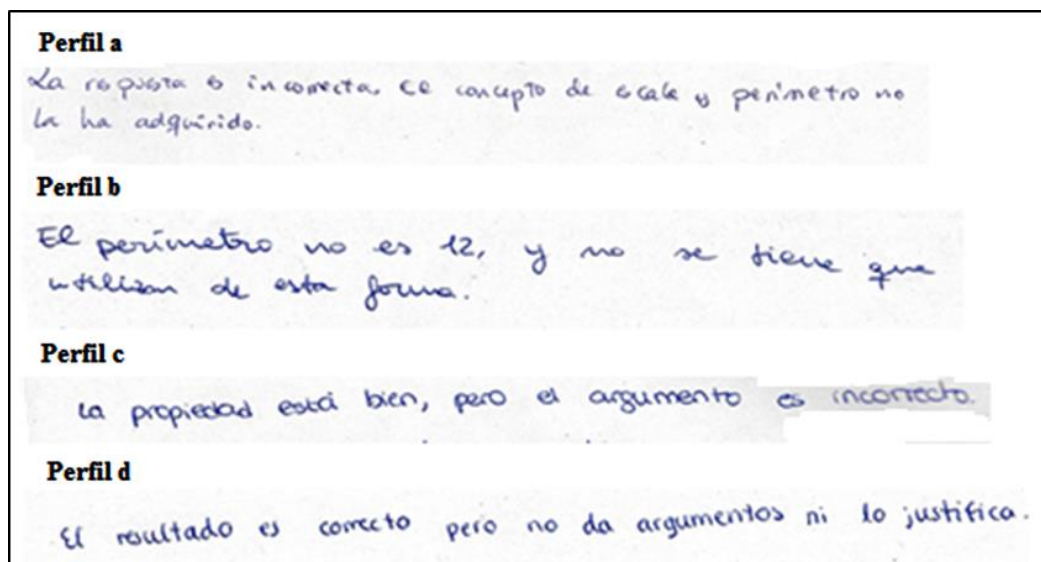 Perfil a
La respuesta es incorrecta. El concepto de escala y perímetro no
la ha adquirido.
Perfil b
El perímetro no es 12, y no se tiene que
utilizar de esta forma.
Perfil c
La propiedad está bien, pero el argumento es incorrecto.
Perfil d
El resultado es correcto pero no da argumentos ni lo justifica.